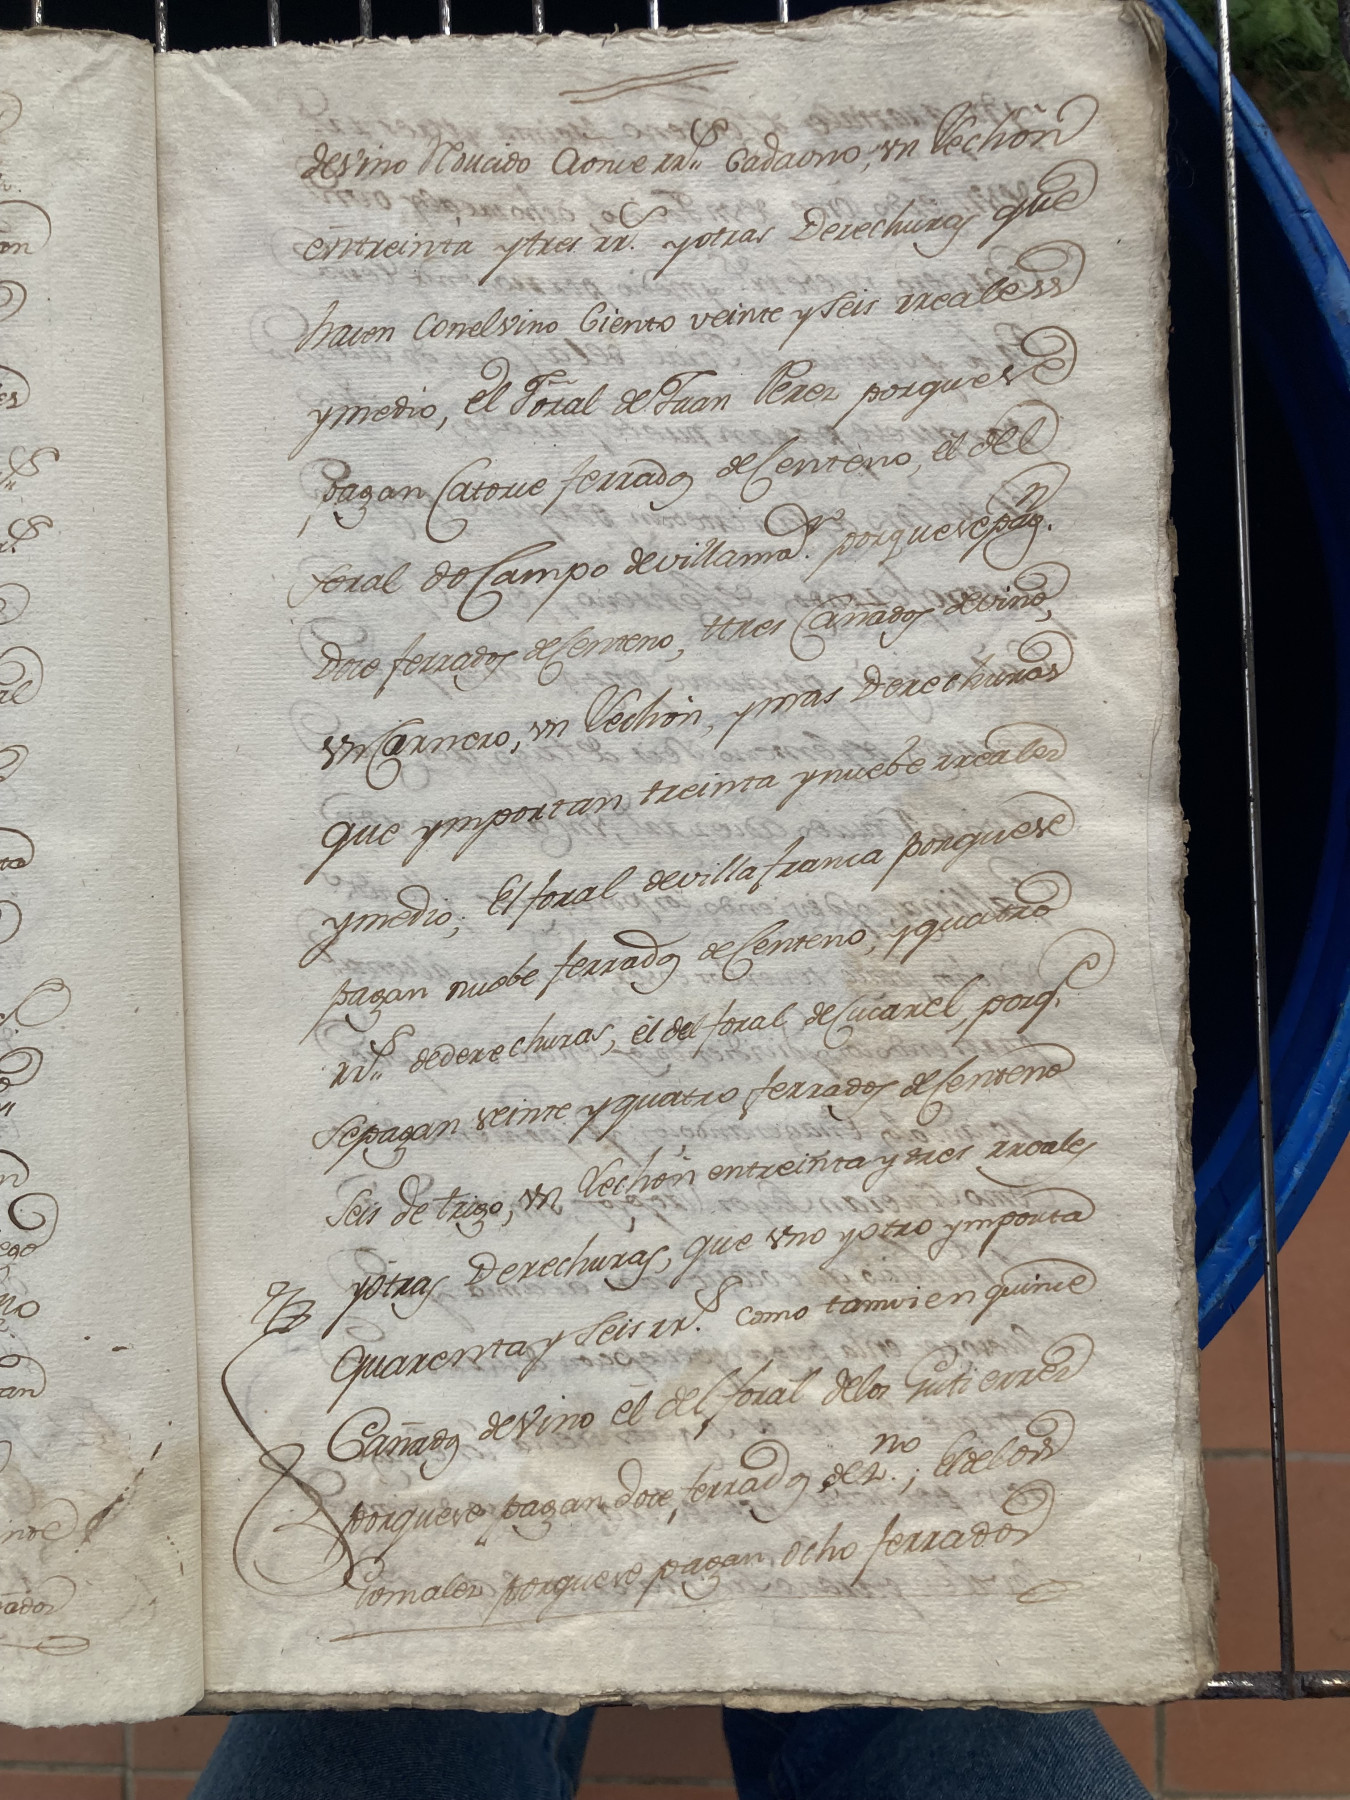 de vino Noucido a onze rr.s cada uno, un Lechon
en treinta y tres rr.s y otras Derechuras que
hacen con el vino Ciento veinte y seis rreales
y medio, el Foral de Juan Perez porque se
pagan Catorce ferrados de Centeno, el del
foral do Campo de villamor. porque se pag.n
Doce ferrados de Centeno, ttres Cañados de vino,
un Carnero, un Lechon, y mas Derechuras
que ymportan treinta y nuebe rreales
y medio; El foral de villafranca porque se
pagan nuebe ferrados de Centeno, y quatro
rr.s de derechuras, el del foral de Cucarel, porq.e
se pagan veinte y quatro ferrados de Centeno
seis de trigo, un Lechon en treinta y tres rreales
y otras Derechuras, que uno y otro ymporta
quarenta y seis rr.s como tamvien quince
Cañados de vino el del foral de los Gutierrez
porque se pagan doce ferrados de z.no; el de los
Gomales porque se pagan ocho ferrados